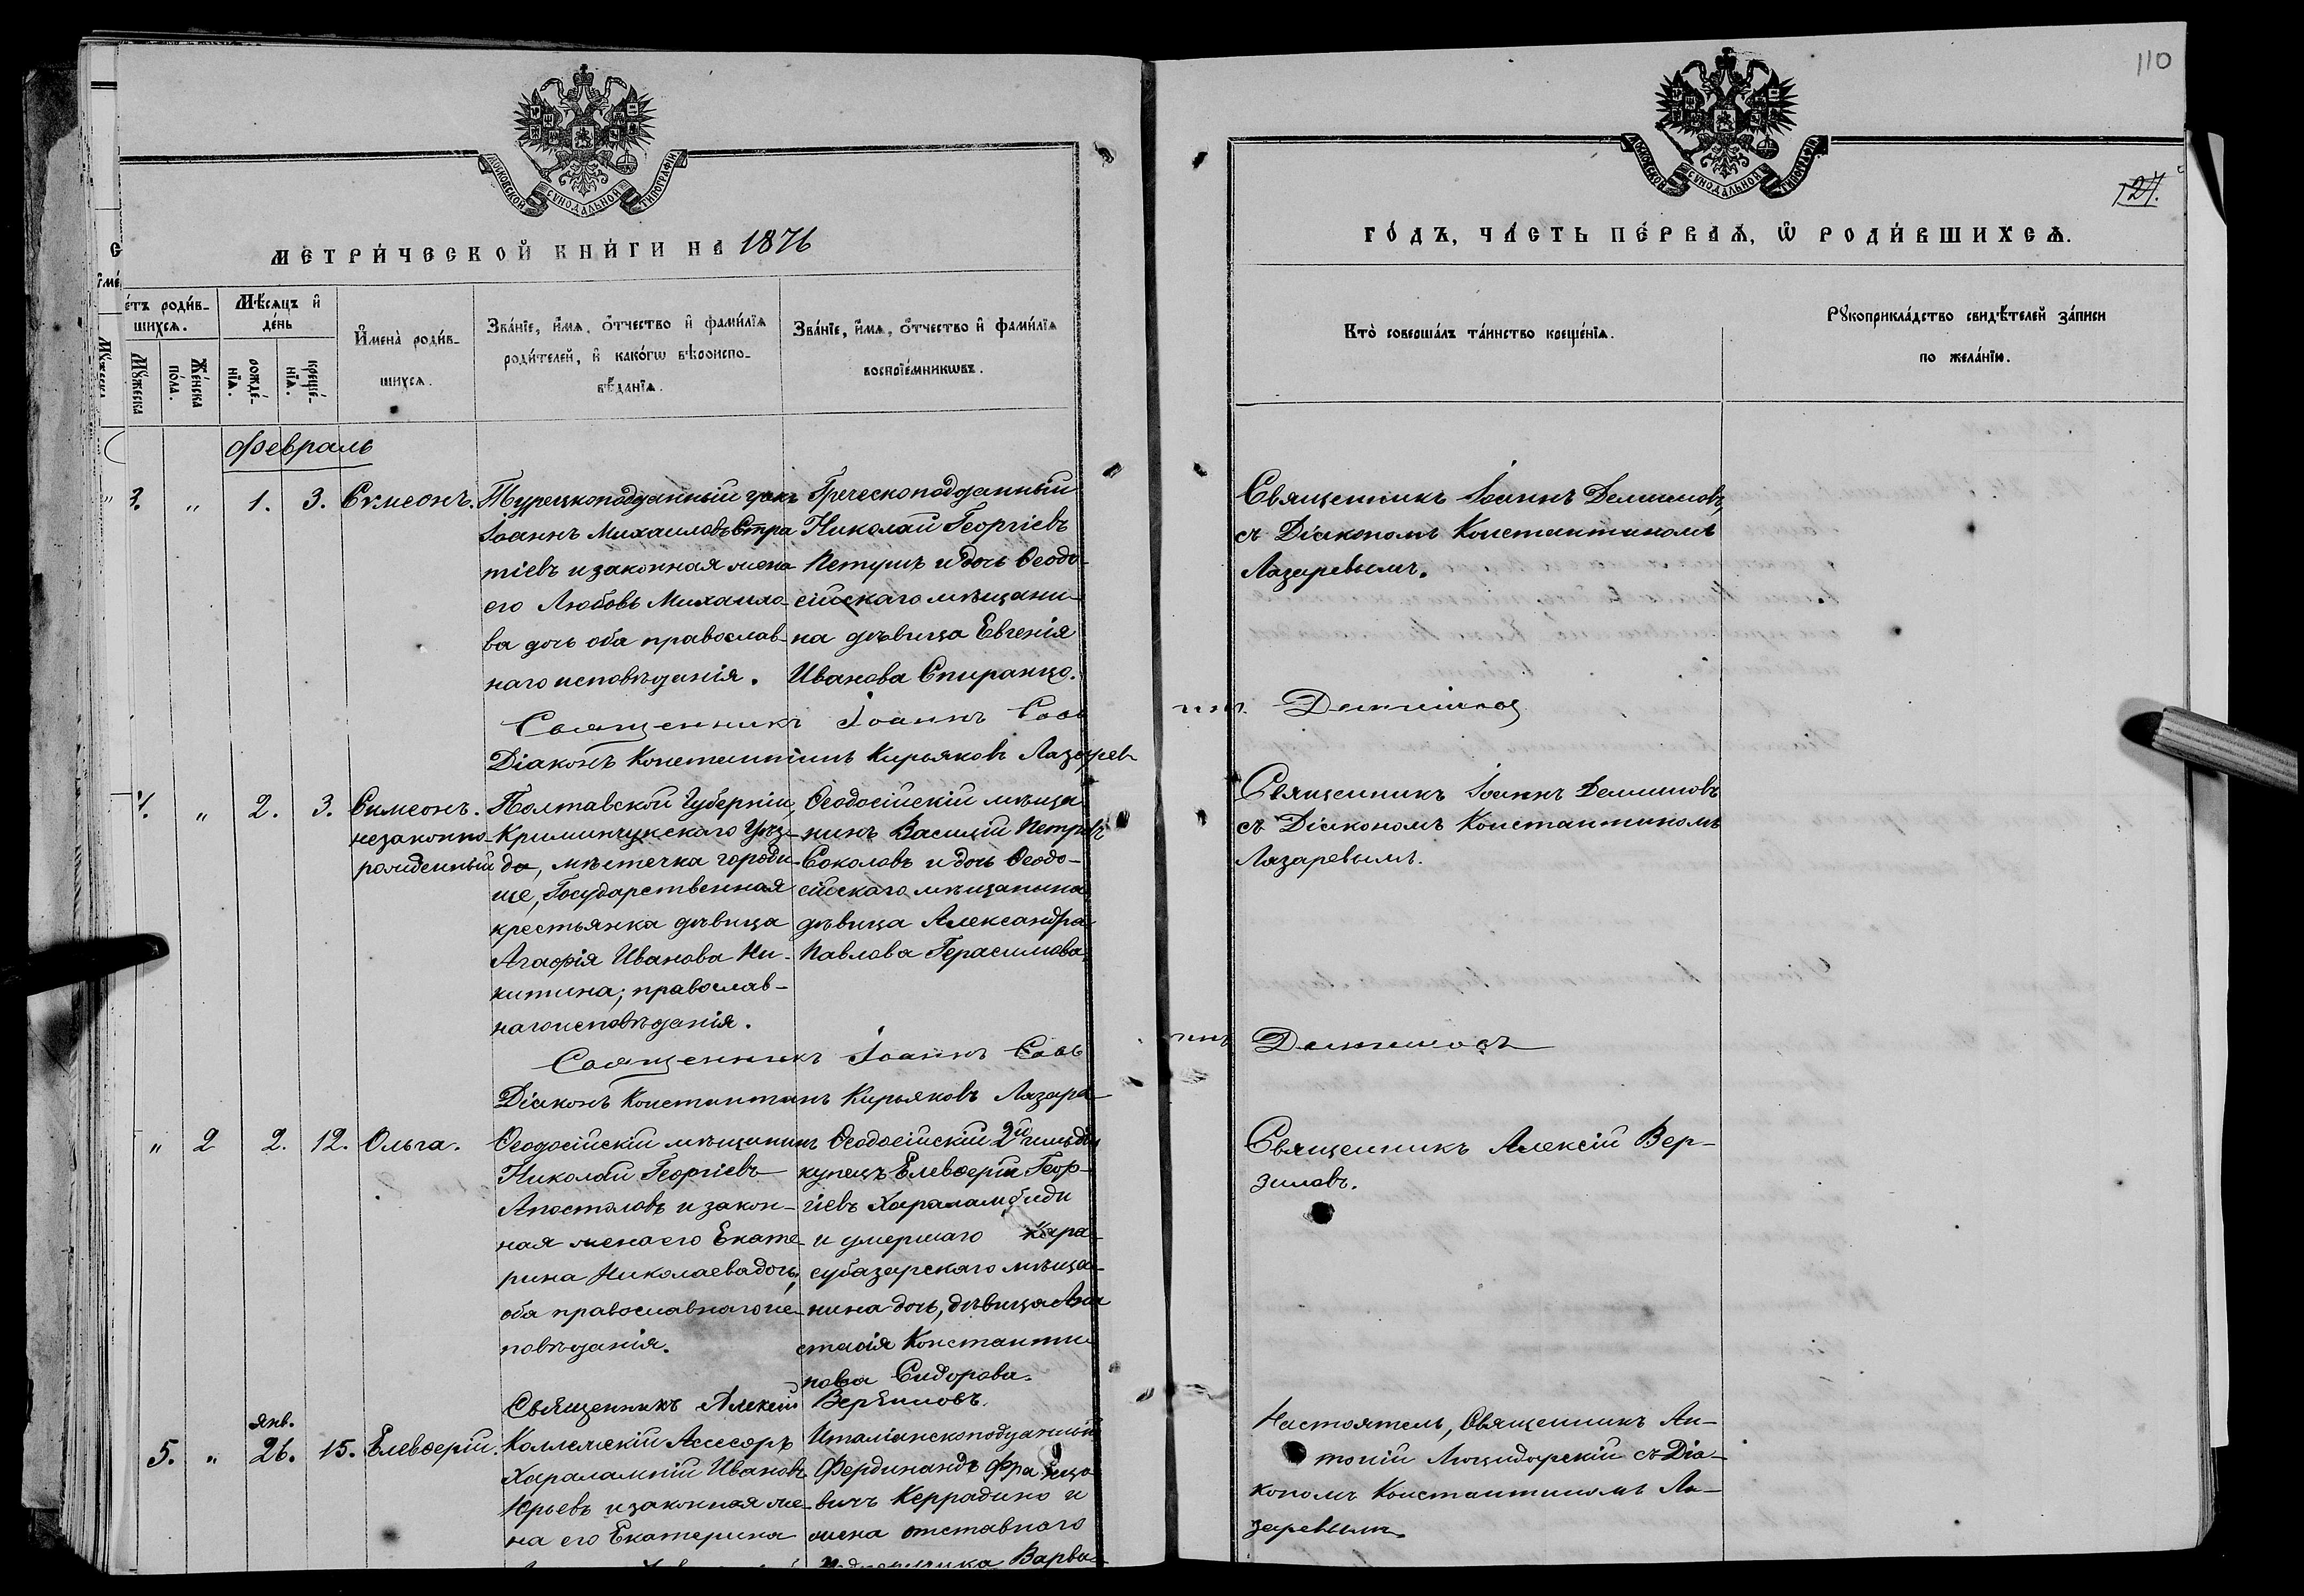 110
МОСКОВСКОЙ СѴНОДАЛЬНОЙ ТИПОГРАФІИ
МОСКОВСКОЙ СѴНОДАЛЬНОЙ ТИПОГРАФІИ
127.
МЕТРИ́ЧЕСКОЙ КНИ́ГИ НА 1876
ГО́ДЪ, ЧА́СТЬ ПЕ́РВАѦ, Ѿ РОДИ́ВШИХСѦ.
е́тъ роди́в-
шихсѧ.
Мꙋ́жеска
Же́нска
по́ла.
Мѣ́сѧцъ и҆
де́нь
рожде́-
нїѧ.
креще́-
нїѧ.
И҆мена̀ роди́в-
шихсѧ.
Зва́нїе, и҆́мѧ, ѻ҆́тчество и҆ фами́лїѧ
роди́телей, и҆ како́гѡ вѣроиспо-
вѣ́данїѧ.
Зва́нїе, и҆́мѧ, ѻ҆́тчество и҆ фами́лїѧ
воспрїе́мникѡвъ.
Кто̀ соверша́лъ та́инство креще́нїѧ.
Рꙋкоприкла́дство свидѣ́телей за́писи
по жела́нїю.
Февраль
3. " 1. 3. Сѵмеонъ.
Турецкоподданный грекъ
Іоаннъ Михаиловъ Стра
тіевъ и законная жена
его Любовь Михаило-
ва дочь оба православ-
наго исповѣданія.
Греческоподданный
Николай Георгіевъ
Петушъ и дочь Ѳеодо-
сійскаго мѣщани-
на дѣвица Евгенія
Иванова Спиранцо.
Священникъ Іоаннъ Демишовъ,
съ Діакономъ Константиномъ
Лазаревымъ.
Священникъ Іоаннъ Савв
Діаконъ Константинъ Кирьяковъ Лазарев
4. " 2. 3. Симеонъ.
незаконно-
рожденный
Полтавской Губерніи,
Криминчукскаго Уѣз-
да, мѣстечка городи-
ще, Государственная
крестьянка дѣвица
Агафія Иванова Ни-
китина; православ-
наго исповѣданія.
Ѳеодосійскій мѣща-
нинъ Василій Петровъ
Соколовъ и дочь Ѳеодо-
сійскаго мѣщанина
дѣвица Александра
Павлова Герасимова.
Священникъ Іоаннъ Демишовъ
съ Діакономъ Константиномъ
Лазаревымъ.
Священникъ Іоаннъ Савв
Діаконъ Константинъ Кирьяковъ Лазарев
" 2 2. 12. Ольга.
Ѳеодосійскій мѣщанинъ
Николай Георгіевъ
Апостоловъ и закон-
ная жена его Екате-
рина Николаева дочь,
оба православнаго ис-
повѣданія.
Ѳеодосійскій 2й гильдіи
купецъ Елевѳерій Геор-
гіевъ Хараламбиди
и умершаго Кара-
субазарскаго мѣща-
нина дочь, дѣвица Ана
стасія Константи
нова Сидорова.
Священникъ Алексій Вер-
зиловъ.
Священникъ Алексій Верзиловъ.
янв.
5. " 26. 15. Елевѳерій.
Коллежскій Асессоръ
Харалампій Ивановъ
Юрьевъ и законная же-
на его Екатерина
Италіанскоподданный
Фердинандъ Фра нцо
вичъ Керрадино и
жена отставного
Варва-
Настоятель, Священникъ Ан-
тоній Лощидарскій съ Діа-
кономъ Константиномъ Ла-
заревымъ